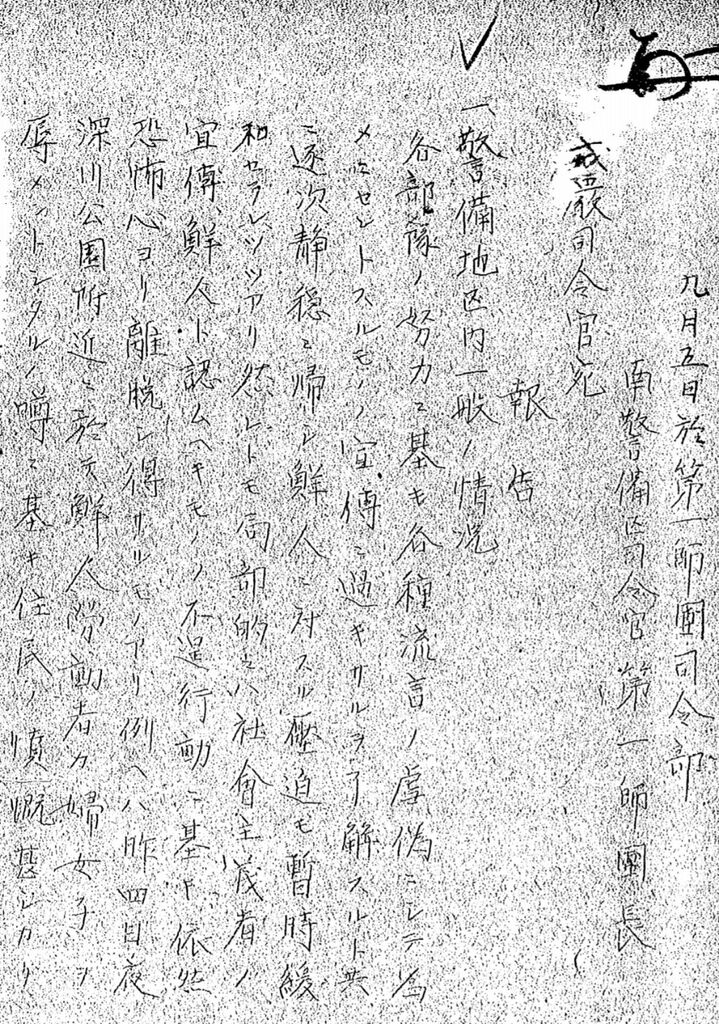 九月五日於第一師團司令部
南警備区司令官第一師團長
戒嚴司令官宛
報告
一、警備地区内一般ノ情況
各部隊ノ努力ニ基キ各種流言ノ虚偽ニシテ為
メニセントスルモノノ宣傳ニ過キサルヲ了解スルト共
ニ逐次静穏ニ帰シ鮮人ニ対スル壓迫モ暫時緩
和セラレツツアリ然レトモ局部的ニハ社會主義者ノ
宣傳、鮮人ト認ムヘキモノノ不逞行動ニ基キ依然
恐怖心ヨリ離脱シ得サルモノアリ例ヘハ昨四日夜
深川公園附近ニ於テ鮮人労動者カ婦女子ヲ
辱メントシタルノ噂ニ基キ住民ノ憤慨甚シカリ